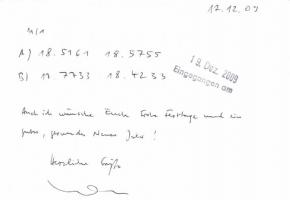 17.12.09
M/1
A) 18.5161 18.5755
B) 17.7733 18.4233
19. Dez. 2009
Eingegangen am
Auch ich wünsche Euch frohe Festtage und ein
gutes, gesundes Neues Jahr !
Herzliche Grüße